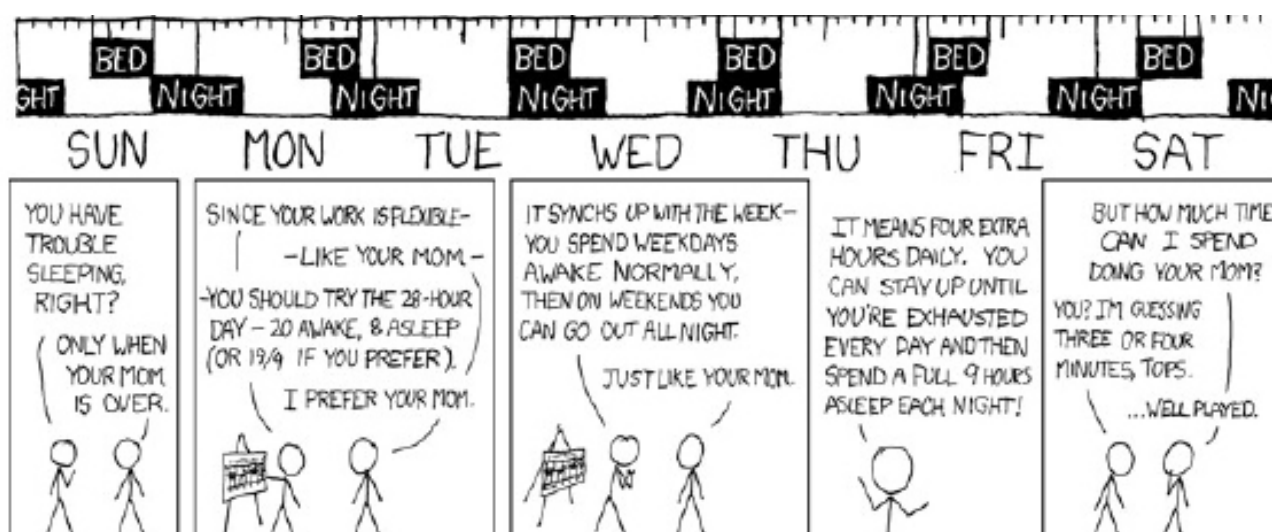 BED BED BED BED BED BED
GHT NIGHT NIGHT NIGHT NIGHT NIGHT NIGHT NI
SUN MON TUE WED THU FRI SAT
YOU HAVE
TROUBLE
SLEEPING,
RIGHT?
ONLY WHEN
YOUR MOM
IS OVER.
SINCE YOUR WORK IS FLEXIBLE-
-LIKE YOUR MOM-
-YOU SHOULD TRY THE 28-HOUR
DAY - 20 AWAKE, 8 ASLEEP
(OR 19/9 IF YOU PREFER).
I PREFER YOUR MOM.
IT SYNCHS UP WITH THE WEEK-
YOU SPEND WEEKDAYS
AWAKE NORMALLY,
THEN ON WEEKENDS YOU
CAN GO OUT ALL NIGHT.
JUST LIKE YOUR MOM.
IT MEANS FOUR EXTRA
HOURS DAILY. YOU
CAN STAY UP UNTIL
YOU'RE EXHAUSTED
EVERY DAY AND THEN
SPEND A FULL 9 HOURS
ASLEEP EACH NIGHT!
BUT HOW MUCH TIME
CAN I SPEND
DOING YOUR MOM?
YOU? I'M GUESSING
THREE OR FOUR
MINUTES, TOPS.
...WELL PLAYED.